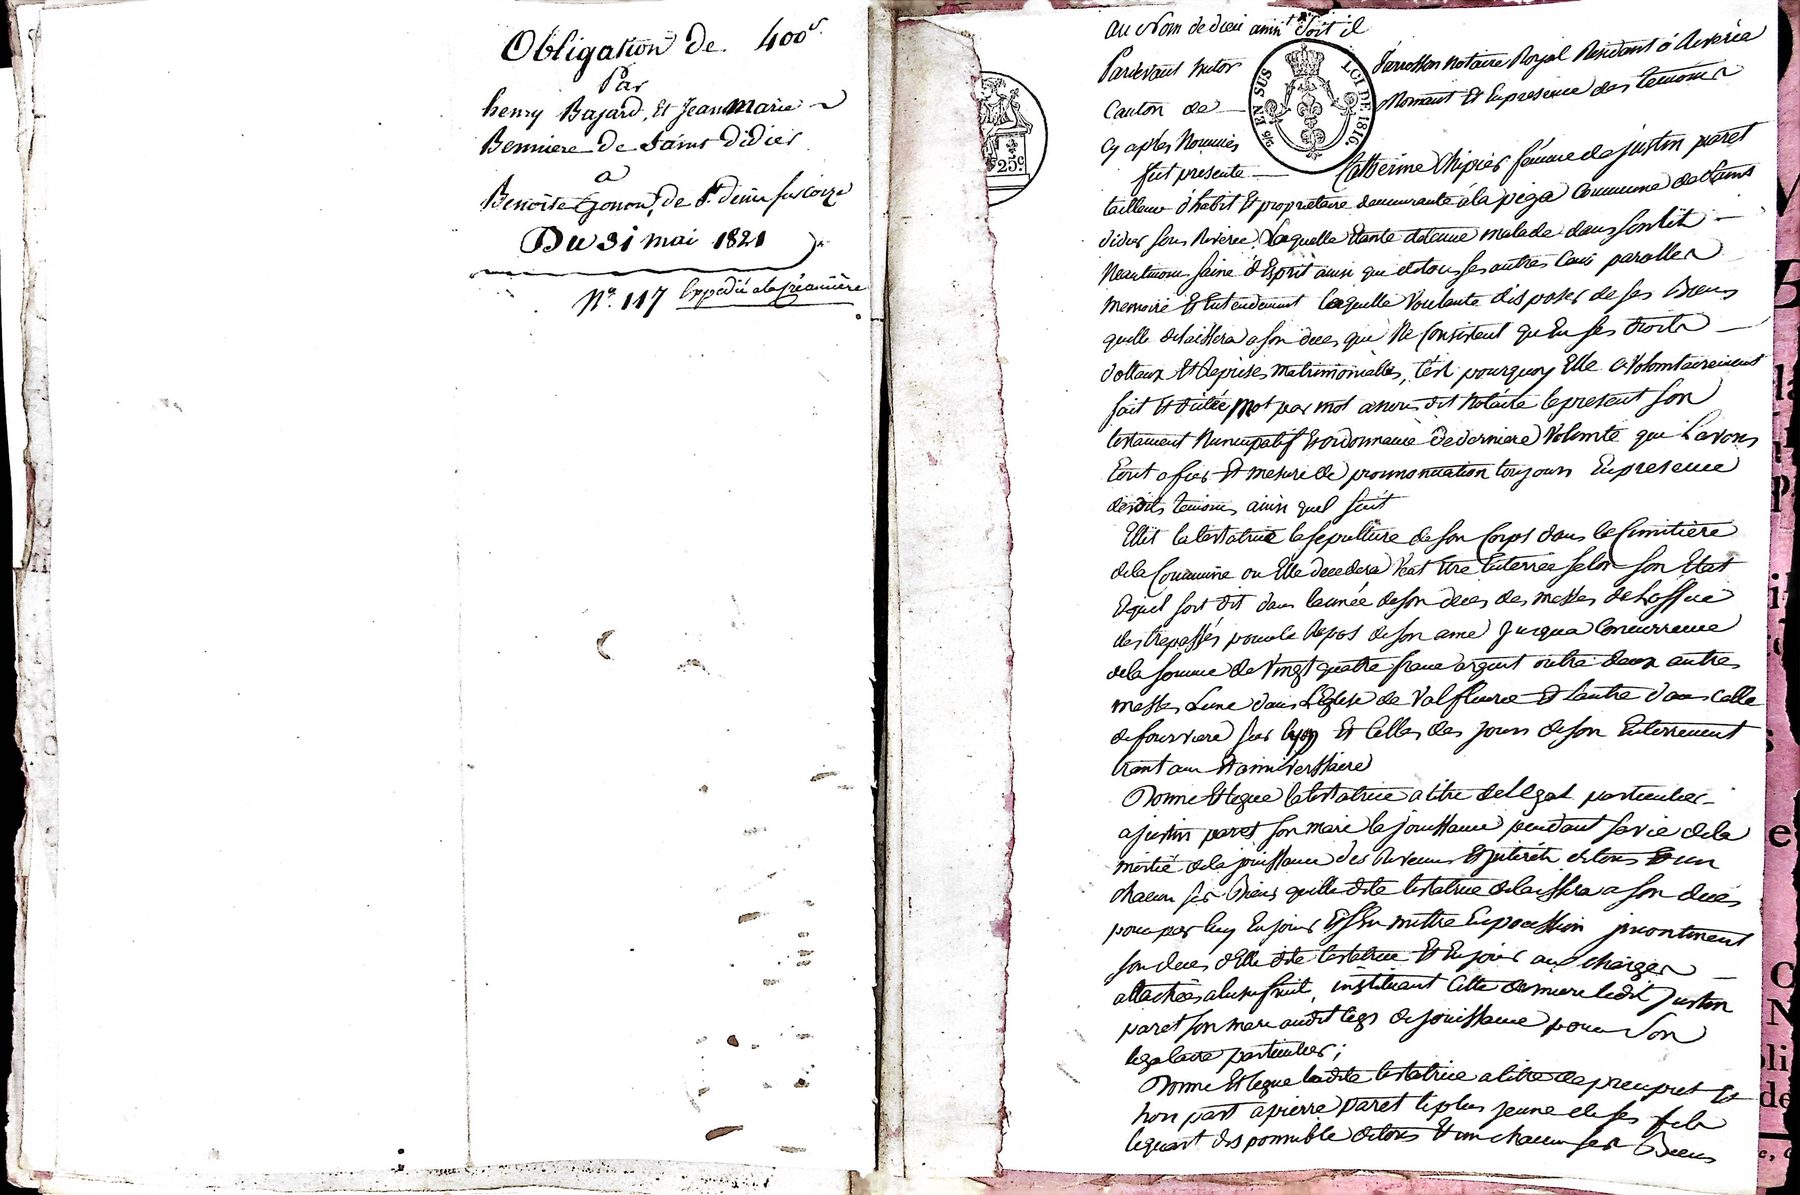 Obligation de 400f.
Par
henry Bajard, Et Jean marie
Bennière de Saint didier
a
Benoite Gonon, de St. denis sur Coize
Du 31 mai 1821
No. 117 Expedié a la créancière
25c.
5/6 EN SUS LOI DE 1816
au Nom de dieu ainsi soit il
Pardevant victor notaire Royal Résidant á Riverie
Canton de Mornant Et En presence des temoins
Cy après Nommés
fut presente Catherine Chipier femme de justin paret
tailleur d'habit Et propriétaire demeurante a la commune de Saint
didier sous Riverie, Laquelle Etante detenue malade dans son lit
Neantmoins saine d'Esprit ainsi que de tous ses autres sens parolle
memoire Et Entendement laquelle voulante disposer de ses Biens
quelle delaissera a son deces qui Ne Consistent qu'En ses droits
dottaux Et Reprises matrimonialles, c'est pourquoy Elle a volontairement
fait Et dicté mot par mot a nous dit Notaire le present son
testament Nuncupatif Et ordonnance de derniere volonté que Lavons
Ecrit a fur Et mesure de prononciation toujours En presence
desdits temoins ainsi quel suit
Elit la testatrice la sepulture de son Corps dans le Cimitière
de la Commune ou Elle decedera Veut Etre Enterrée selon son Etat
Et quil soit dit dans lannée de son deces des messes de Loffice
des trepassés pour le Repos de son ame jusqua Concurrence
de la somme de vingt quatre francs argent outre deux autres
messes Lune dans L'Eglise de Valfleurie Et lautre dans celle
de fourviere sur lyon Et Celles des jours de son Enterrement
trantain Et anniverssaire
Donne Et legue la testatrice a titre de Legat particulier
a justin paret son mari la jouissance pendant sa vie de la
moitié de la jouissance des Revenus Et jnterêts de tous Et un
chacun ses Biens quelle dite testatrice delaissera a son deces
pour par luy En jouir Et s'En mettre En possession jncontinent
son deces d'Elle dite testatrice Et En jouir aux charges
attachées a lusufruit, instituant Cette derniere ledit justin
paret son mari audit legs de jouissance pour Son
legataire particulier;
Donne Et legue ladite testatrice a titre de preciput Et
hors part a pierre paret le plus jeune de ses fils
le quart disponible de tous Et un chacun ses Biens